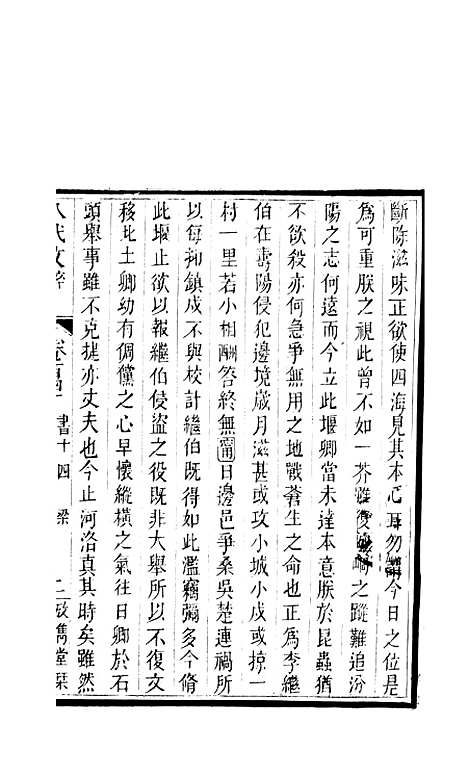 斷除滋味正欲使四海見其本心耳勿謂今日之位是
為可重朕之視此曾不如一芥雖復崆峒之蹤難追汾
陽之志何遠而今立此堰卿當未達本意朕於昆蟲猶
不欲殺亦何急爭無用之地戰蒼生之命也正為李繼
伯在壽陽侵犯邊境歲月滋甚或攻小城小戍或掠一
村一里若小相酬答終無甯日邊邑爭桑吳楚連禍所
以每抑鎮戍不與校計繼伯既得如此濫竊彌多今脩
此堰止欲以報繼伯侵盜之役既非大舉所以不復文
移北土卿幼有倜儻之心早懷縱橫之氣往日卿於石
頭舉事雖不克捷亦丈夫也今止河洛真其時矣雖然
八代文粹 卷 書十四 梁 二 啟雋堂栞